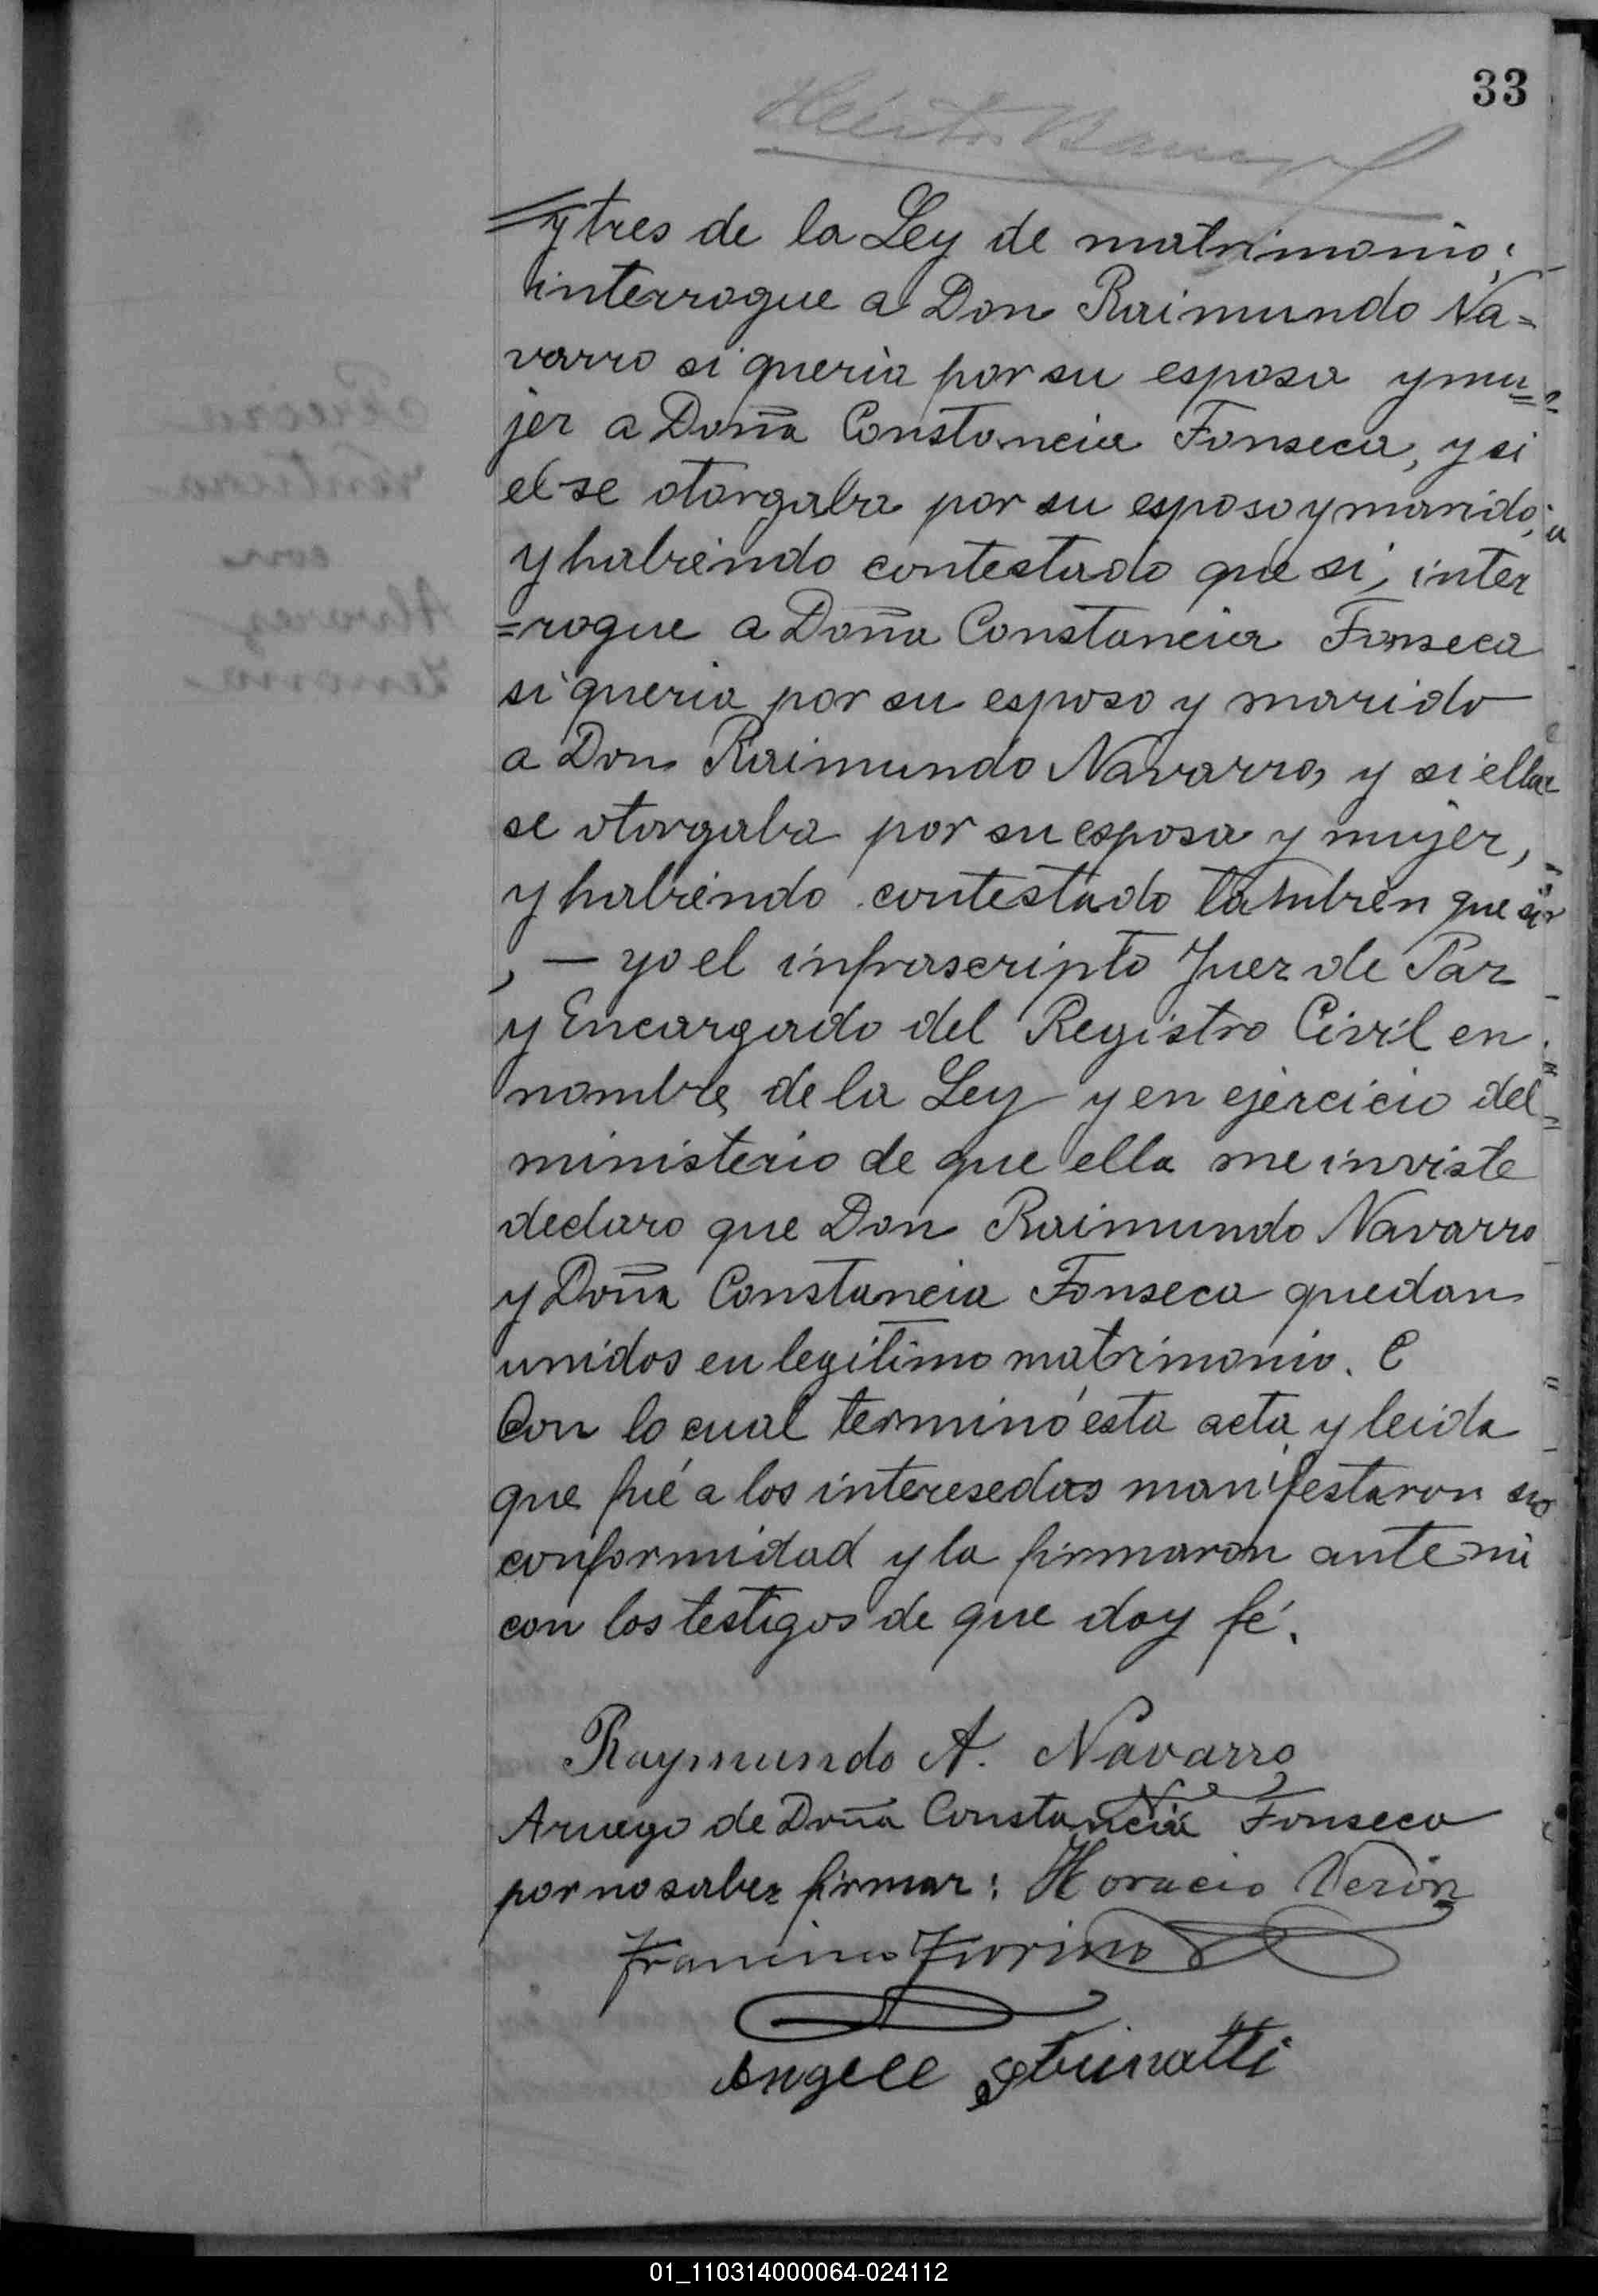 33
y tres de la Ley de matrimonio;
interrogue a Don Raimundo Na=
varro si queria por su esposa y mu=
jer a Doña Constancia Fonseca, y si
el se otorgaba por su esposo y marido,
y habiendo contestado que si, inter
=rogue a Doña Constancia Fonseca
si queria por su esposo y marido
a Don Raimundo Navarro, y si ella
se otorgaba por su esposa y mujer,
y habiendo contestado también que si
, — yo el infrascripto Juez de Paz
y Encargado del Registro Civil en
nombre de la Ley y en ejercicio del
ministerio de que ella me inviste
declaro que Don Raimundo Navarro
y Doña Constancia Fonseca quedan
unidos en legitimo matrimonio. C
Con lo cual terminó esta acta y leida
que fué a los interesedos manifestaron su
conformidad y la firmaron ante mi
con los testigos de que doy fé.
Raymundo A. Navarro
Aruego de Doña Constancia Fonseca
por no saber firmar: Horacio Verón
Fiorino
Angell
01_110314000064-024112